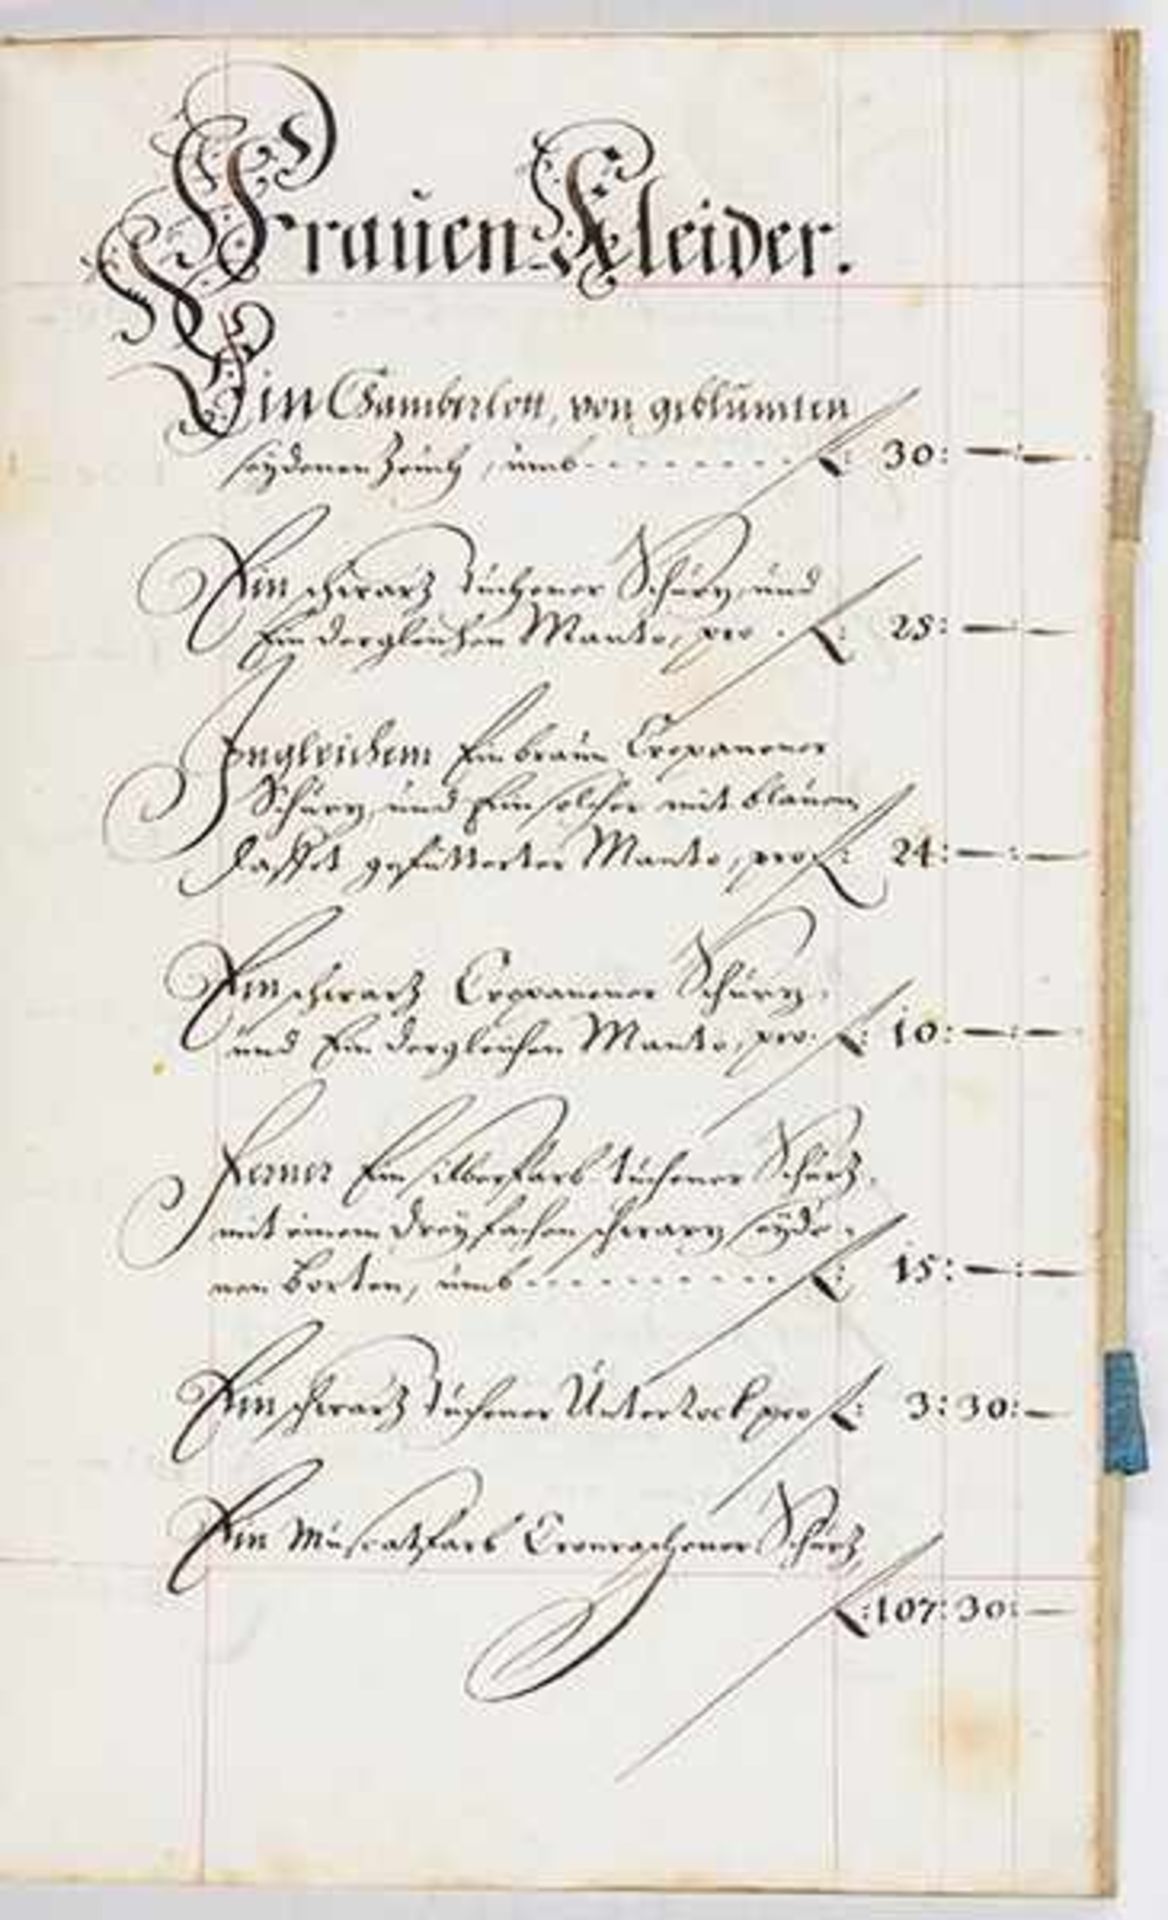 Frauen-Kleider.
Ein Gamberlott, von geblümten
seydenen Zeuch, umb - - - - - - - - f: 30: — : —
Ein schwarz tuchener Schurz, und
Ein dergleichen Manto, pro . f: 25: — : —
Ingleichem Ein braun Creponener
Schurz, und Ein solcher mit blauem
Taffet gefütterter Manto, pro f: 24: — : —
Ein schwarz Creponener Schurz,
und Ein dergleichen Manto, pro. f: 10: — : —
Ferner Ein silberfarb tuchener Schurz,
mit einem dreyfachen schwarz seyde-
nen Borten, umb - - - - - - - - f: 15: — : —
Ein schwarz tuchener Unterrock pro f: 3: 30: —
Ein Muscatfarb Schurz,
f: 107: 30: —